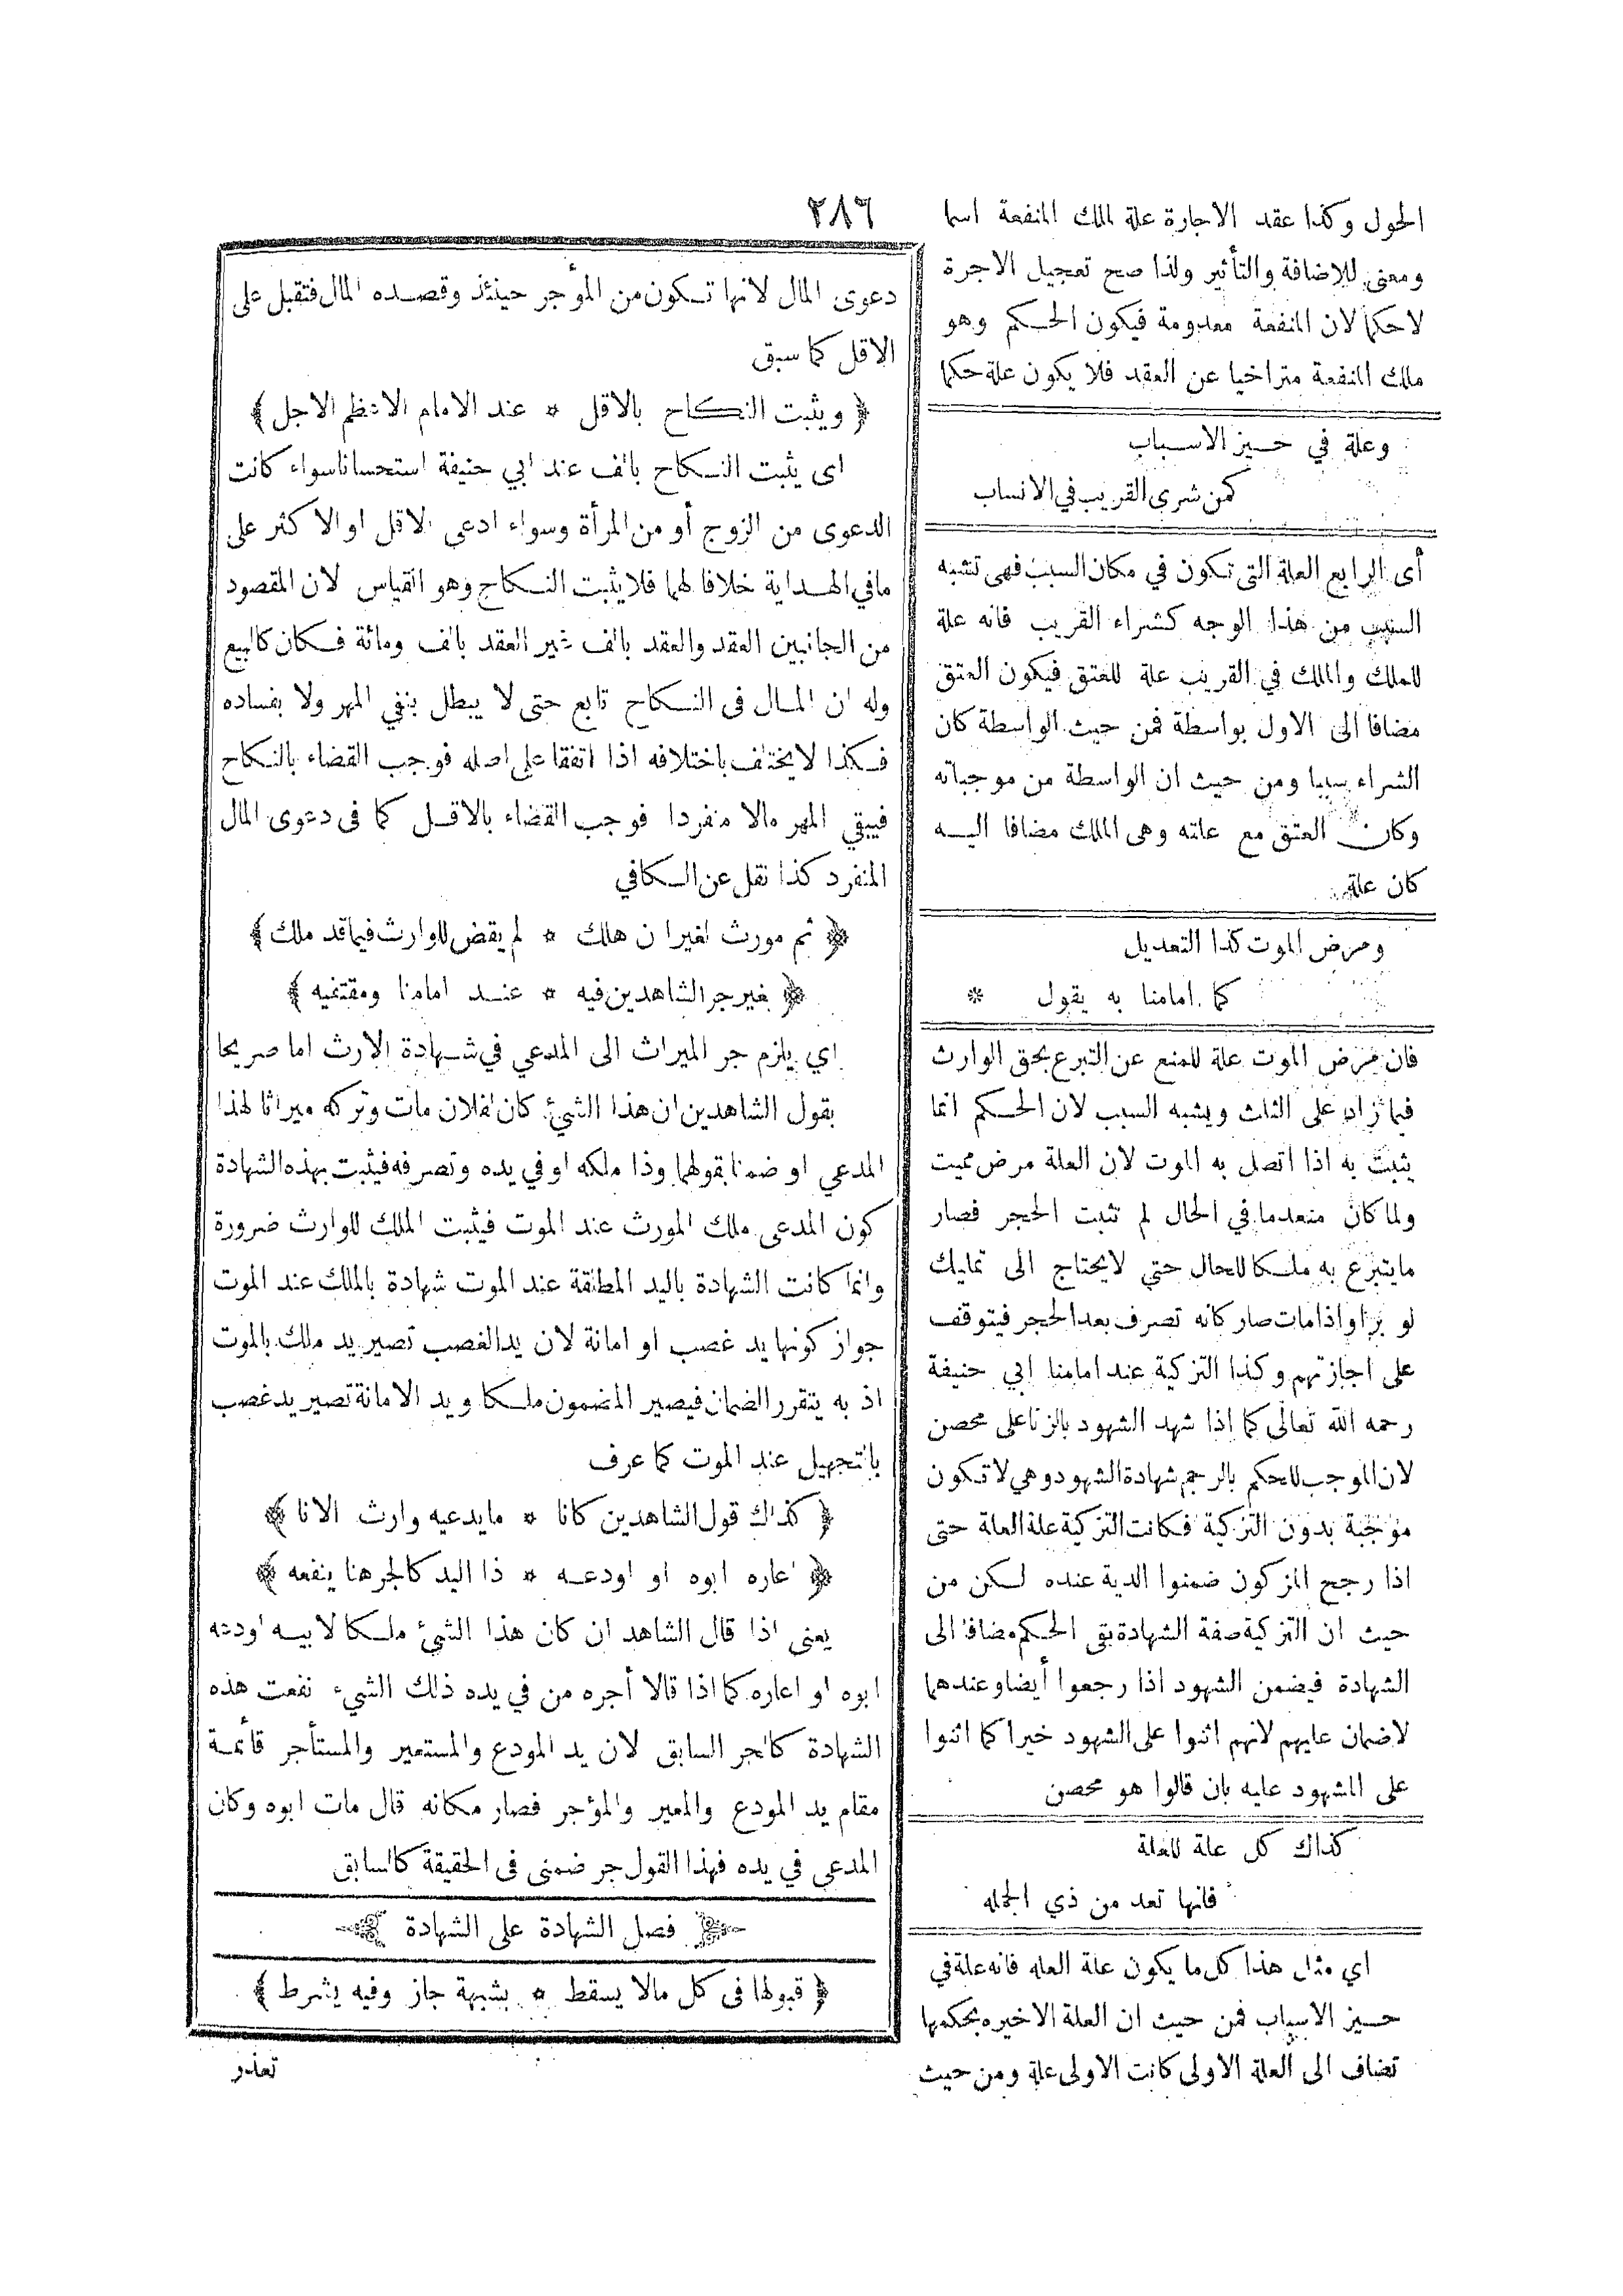 ٢٨٦
الحول وكذا عقد الاجارة علة لملك المنفعة اسما
ومعنى للاضافة والتأثير ولذا صح تعجيل الاجرة
لاحكما لان المنفعة معدومة فيكون الحكم وهو
ملك المنفعة متراخيا عن العقد فلا يكون علة حكما
وعلة في حيز الاسباب
كمن شرى القريب في الانساب
أى الرابع العلة التى تكون في مكان السبب فهى تشبه
السبب من هذا الوجه كشراء القريب فانه علة
للملك والملك في القريب علة للعتق فيكون العتق
مضافا الى الاول بواسطة فمن حيث الواسطة كان
الشراء سببا ومن حيث ان الواسطة من موجباته
وكان العتق مع علته وهى الملك مضافا اليه
كان علة
ومرض الموت كذا التعديل
كما امامنا به يقول *
فان مرض الموت علة للمنع عن التبرع بحق الوارث
فيما زاد على الثلث ويشبه السبب لان الحكم انما
يثبت به اذا اتصل به الموت لان العلة مرض مميت
ولما كان منعدما في الحال لم تثبت الحجر فصار
مايتبرع به ملكا للحال حتي لايحتاج الى تمليك
لو برأ واذا مات صار كانه تصرف بعد الحجر فيتوقف
على اجازتهم وكذا التزكية عند امامنا ابي حنيفة
رحمه الله تعالى كما اذا شهد الشهود بالزنا على محصن
لان الموجب للحكم بالرجم شهادة الشهود وهي لا تكون
موجبة بدون التزكية فكانت التزكية علة العلة حتى
اذا رجح المزكون ضمنوا الدية عنده لكن من
حيث ان التزكية صفة الشهادة بقي الحكم مضافا الى
الشهادة فيضمن الشهود اذا رجعوا أيضا وعندهما
لاضمان عليهم لانهم اثنوا على الشهود خيرا كما اثنوا
على المشهود عليه بان قالوا هو محصن
كذاك كل علة للعلة
فانها تعد من ذي الجمله
اي مثل هذا كل ما يكون علة العله فانه علة في
حيز الاسباب فمن حيث ان العلة الاخيره بحكمها
تضاف الى العلة الاولى كانت الاولى علة ومن حيث
دعوى المال لانها تكون من المؤجر حينئذ وقصده المال فتقبل على
الاقل كما سبق
﴿ ويثبت النكاح بالاقل * عند الامام الاعظم الاجل ﴾
اى يثبت النكاح بالف عند ابي حنيفة استحسانا سواء كانت
الدعوى من الزوج أو من المرأة وسواء ادعى الاقل او الاكثر على
مافي الهداية خلافا لهما فلا يثبت النكاح وهو القياس لان المقصود
من الجانبين العقد والعقد بالف غير العقد بالف ومائة فكان كالبيع
وله ان المال فى النكاح تابع حتى لا يبطل بنفي المهر ولا بفساده
فكذا لايختلف باختلافه اذا اتفقا على اصله فوجب القضاء بالنكاح
فيبقي المهر مالا منفردا فوجب القضاء بالاقل كما فى دعوى المال
المنفرد كذا نقل عن الكافي
﴿ ثم مورث لغير ان هلك * لم يقض للوارث فيما قد ملك ﴾
﴿ بغير جر الشاهدين فيه * عند امامنا ومقتفيه ﴾
اي يلزم جر الميراث الى المدعي في شهادة الارث اما صريحا
بقول الشاهدين ان هذا الشيئ كان لفلان مات وتركه ميراثا لهذا
المدعي او ضمنا بقولهما وذا ملكه او في يده وتصرفه فيثبت بهذه الشهادة
كون المدعى ملك المورث عند الموت فيثبت الملك للوارث ضرورة
وانما كانت الشهادة باليد المطلقة عند الموت شهادة بالملك عند الموت
جواز كونها يد غصب او امانة لان يد الغصب تصير يد ملك بالموت
اذ به يتقرر الضمان فيصير المضمون ملكا ويد الامانة تصير يد غصب
بالتجهيل عند الموت كما عرف
﴿ كذاك قول الشاهدين كانا * مايدعيه وارث الانا ﴾
﴿ اعاره ابوه او اودعه * ذا اليد كالجر هنا ينفعه ﴾
يعنى اذا قال الشاهد ان كان هذا الشيئ ملكا لابيه اودعه
ابوه او اعاره كما اذا قالا أجره من في يده ذلك الشيء نفعت هذه
الشهادة كالجر السابق لان يد المودع والمستعير والمستأجر قائمة
مقام يد المودع والمعير والمؤجر فصار مكانه قال مات ابوه وكان
المدعى في يده فهذا القول جر ضمنى فى الحقيقة كالسابق
فصل الشهادة على الشهادة
﴿ قبولها فى كل مالا يسقط * بشبهة جاز وفيه يشرط ﴾
تعذر